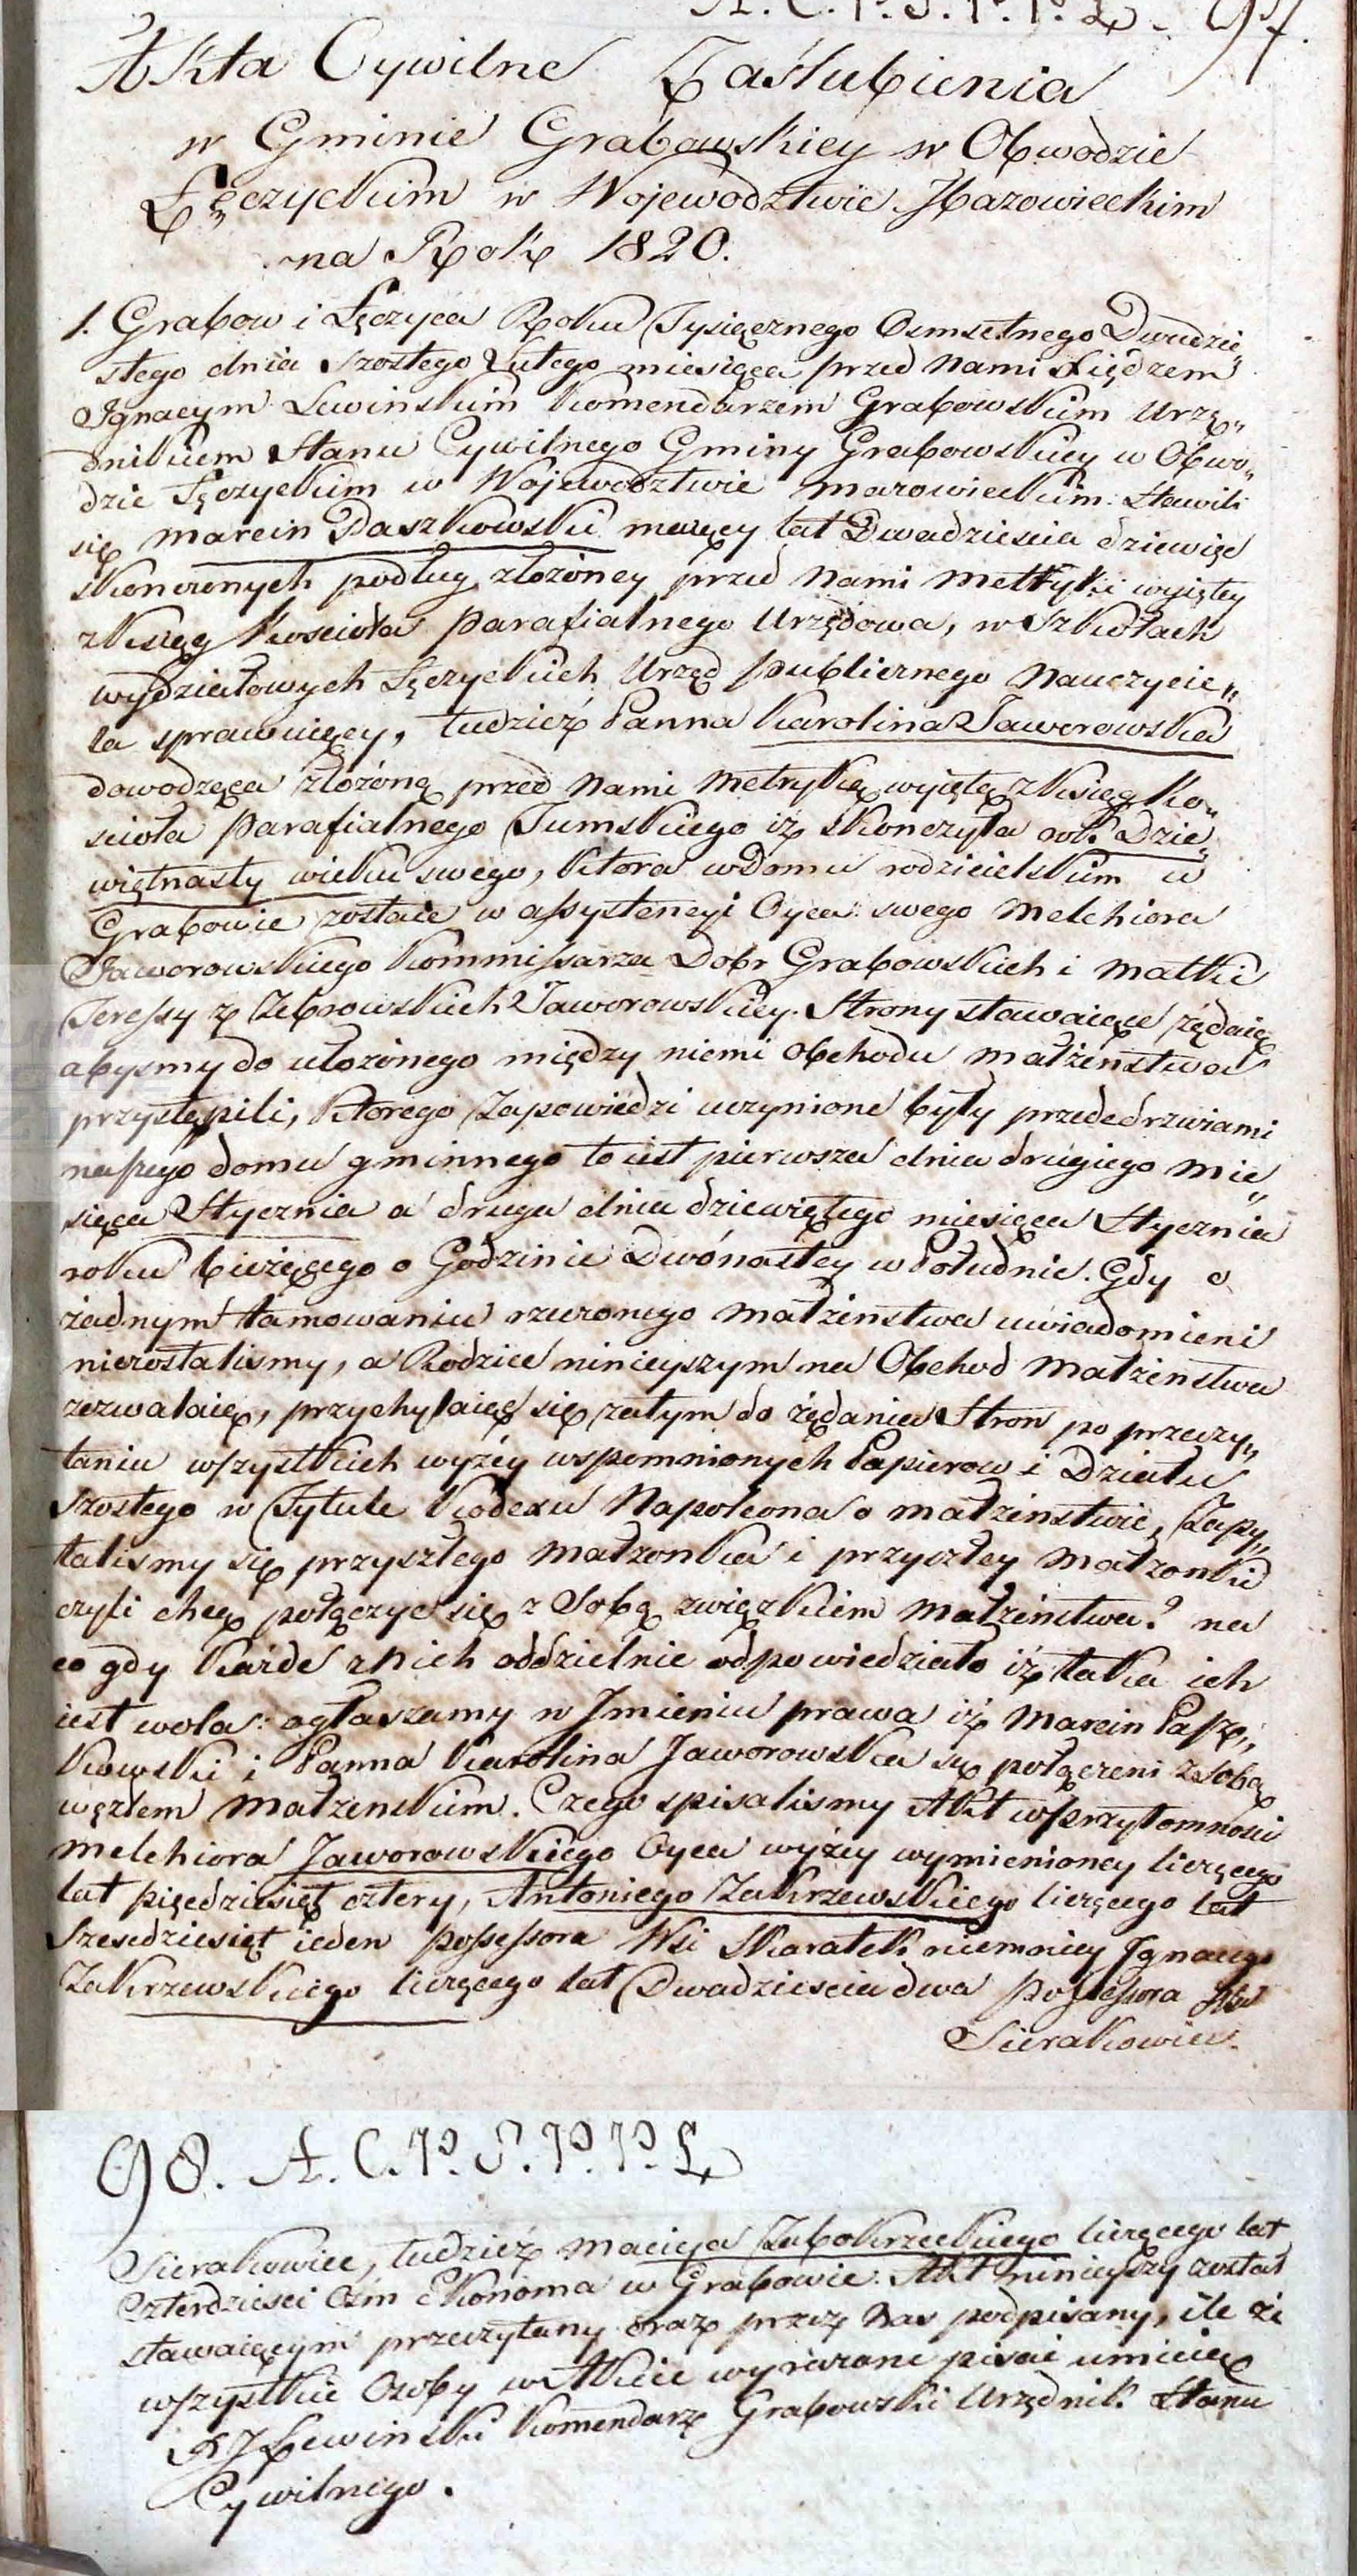 A. C. P. S. P. P. Ł. 97.
Akta Cywilne Zaślubienia
w Gminie Grabowskiey w Obwodzie
Łęczyckim w Woiewodztwie Mazowieckim
na Rok 1820.
1. Grabow i Łęczyca Roku Tysiącznego Osmsetnego Dwudzie„
stego dnia szostego Lutego miesiąca przed Nami Xiędzem
Ignacym Lewinskim Komendarzem Grabowskim Urzę„
dnikiem Stanu Cywilnego Gminy Grabowskiey w Obwo„
dzie Łęczyckim w Wojewodztwie Mazowieckim. Stawili
się Marcin Paszkowski maiący lat Dwadziescia dziewięć
skonczonych podług złozoney przed Nami Metryki wyiętey
z ksiąg Koscioła Parafialnego Urzędowa, w Szkołach
wydziałowych Łęczyckich Urząd publicznego Nauczycie„
la sprawuiący, tudzież Panna Karolina Jaworowska
dowodząca złożoną przed Nami Metryką wyiętą z ksiąg Ko„
scioła Parafialnego Tumskiego iż skonczyła rok Dzie„
więtnasty wieku swego, ktora w Domu rodzicielskim w
Grabowie zostaie w assystencyi Oyca swego Melchiora
Jaworowskiego Kommissarza Dobr Grabowskich i Matki
Teressy z Zebrowskich Jaworowskiey. Strony stawaiące żądaią
abysmy do ułozonego między niemi obchodu małżenstwa
przystąpili, ktorego Zapowiedzi uczynione były przededrzwiami
naszego domu gminnego to iest pierwsza dnia drugiego Mie„
siąca Stycznia a druga dnia dziewiątego miesiąca Stycznia
roku bieżącego o Godzinie Dwónastey w Południe. Gdy o
żadnym tamowaniu rzeczonego Małżenstwa uwiadomieni
niezostalismy, a Rodzice ninieyszym na Obchod Małżenstwa
zezwalaią, przychylaiąc się zatym do żądania Stron po przeczy„
taniu wszystkich wyżey wspomnionych Papierow i Działu
szostego w Tytule Kodexu Napoleona o małżenstwie, Zapy„
talismy się przyszłego Małzonka i przyszłey Małzonki
czyli chcą połączyc się z Sobą związkiem Małżenstwa? na
co gdy każde z Nich oddzielnie odpowiedziało iż taka ich
iest wola: ogłaszamy w Jmieniu prawa iż Marcin Pasz„
kowski i Panna Karolina Jaworowska są połączeni z Sobą
węzłem Małżenskim. Czego spisalismy Akt w przytomnosci
Melchiora Jaworowskiego Oyca wyżey wymienioney liczącego
lat pięcdziesiąt cztery, Antoniego Zakrzewskiego liczącego lat
Szescdziesiąt ieden possessora Wsi Skaratek niemniey Jgnacego
Zakrzewskiego liczącego lat Dwadziescia dwa possessora Wsi
Sierakowiec.
98. A. C. P. S. P. P. Ł
Sierakowiec, tudzież Macieja Zabokrzeckiego liczącego lat
Czterdziesci Osm Ekonoma w Grabowie. Akt ninieyszy został
stawaiącym przeczytany oraz przez Nas podpisany, ile że
wszystkie Osoby w Akcie wyrażone pisać umieią
X J Lewinski Komendarz Grabowski Urzędnik Stanu
Cywilnego.